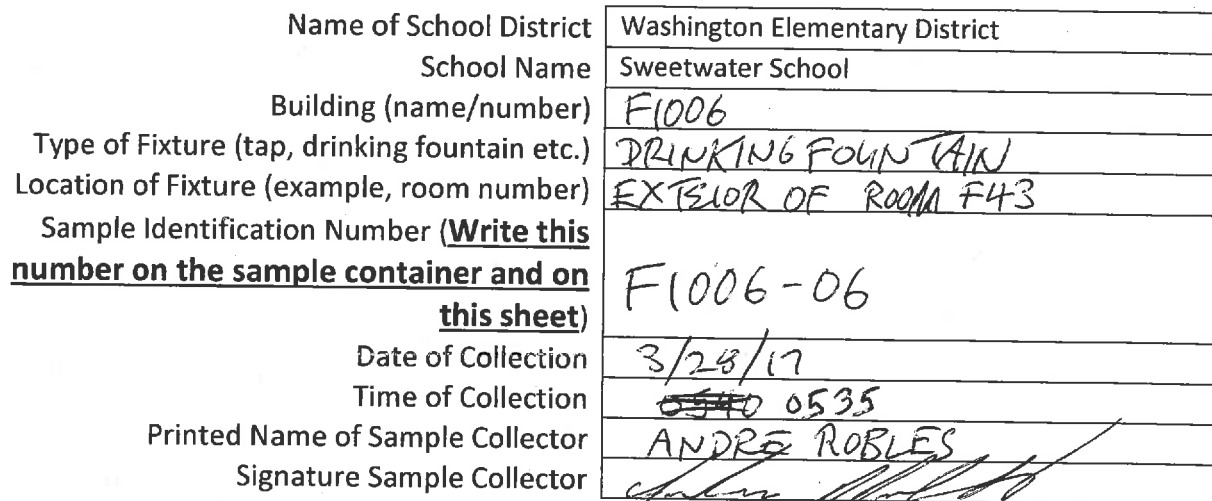 Name of School District Washington Elementary District
School Name Sweetwater School
Building (name/number) F1006
Type of Fixture (tap, drinking fountain etc.) DRINKING FOUNTAIN
Location of Fixture (example, room number) EXTEIOR OF ROOM F43
Sample Identification Number (Write this
number on the sample container and on
this sheet) F1006-06
Date of Collection 3/28/17
Time of Collection 0540 0535
Printed Name of Sample Collector ANDRE ROBLES
Signature Sample Collector